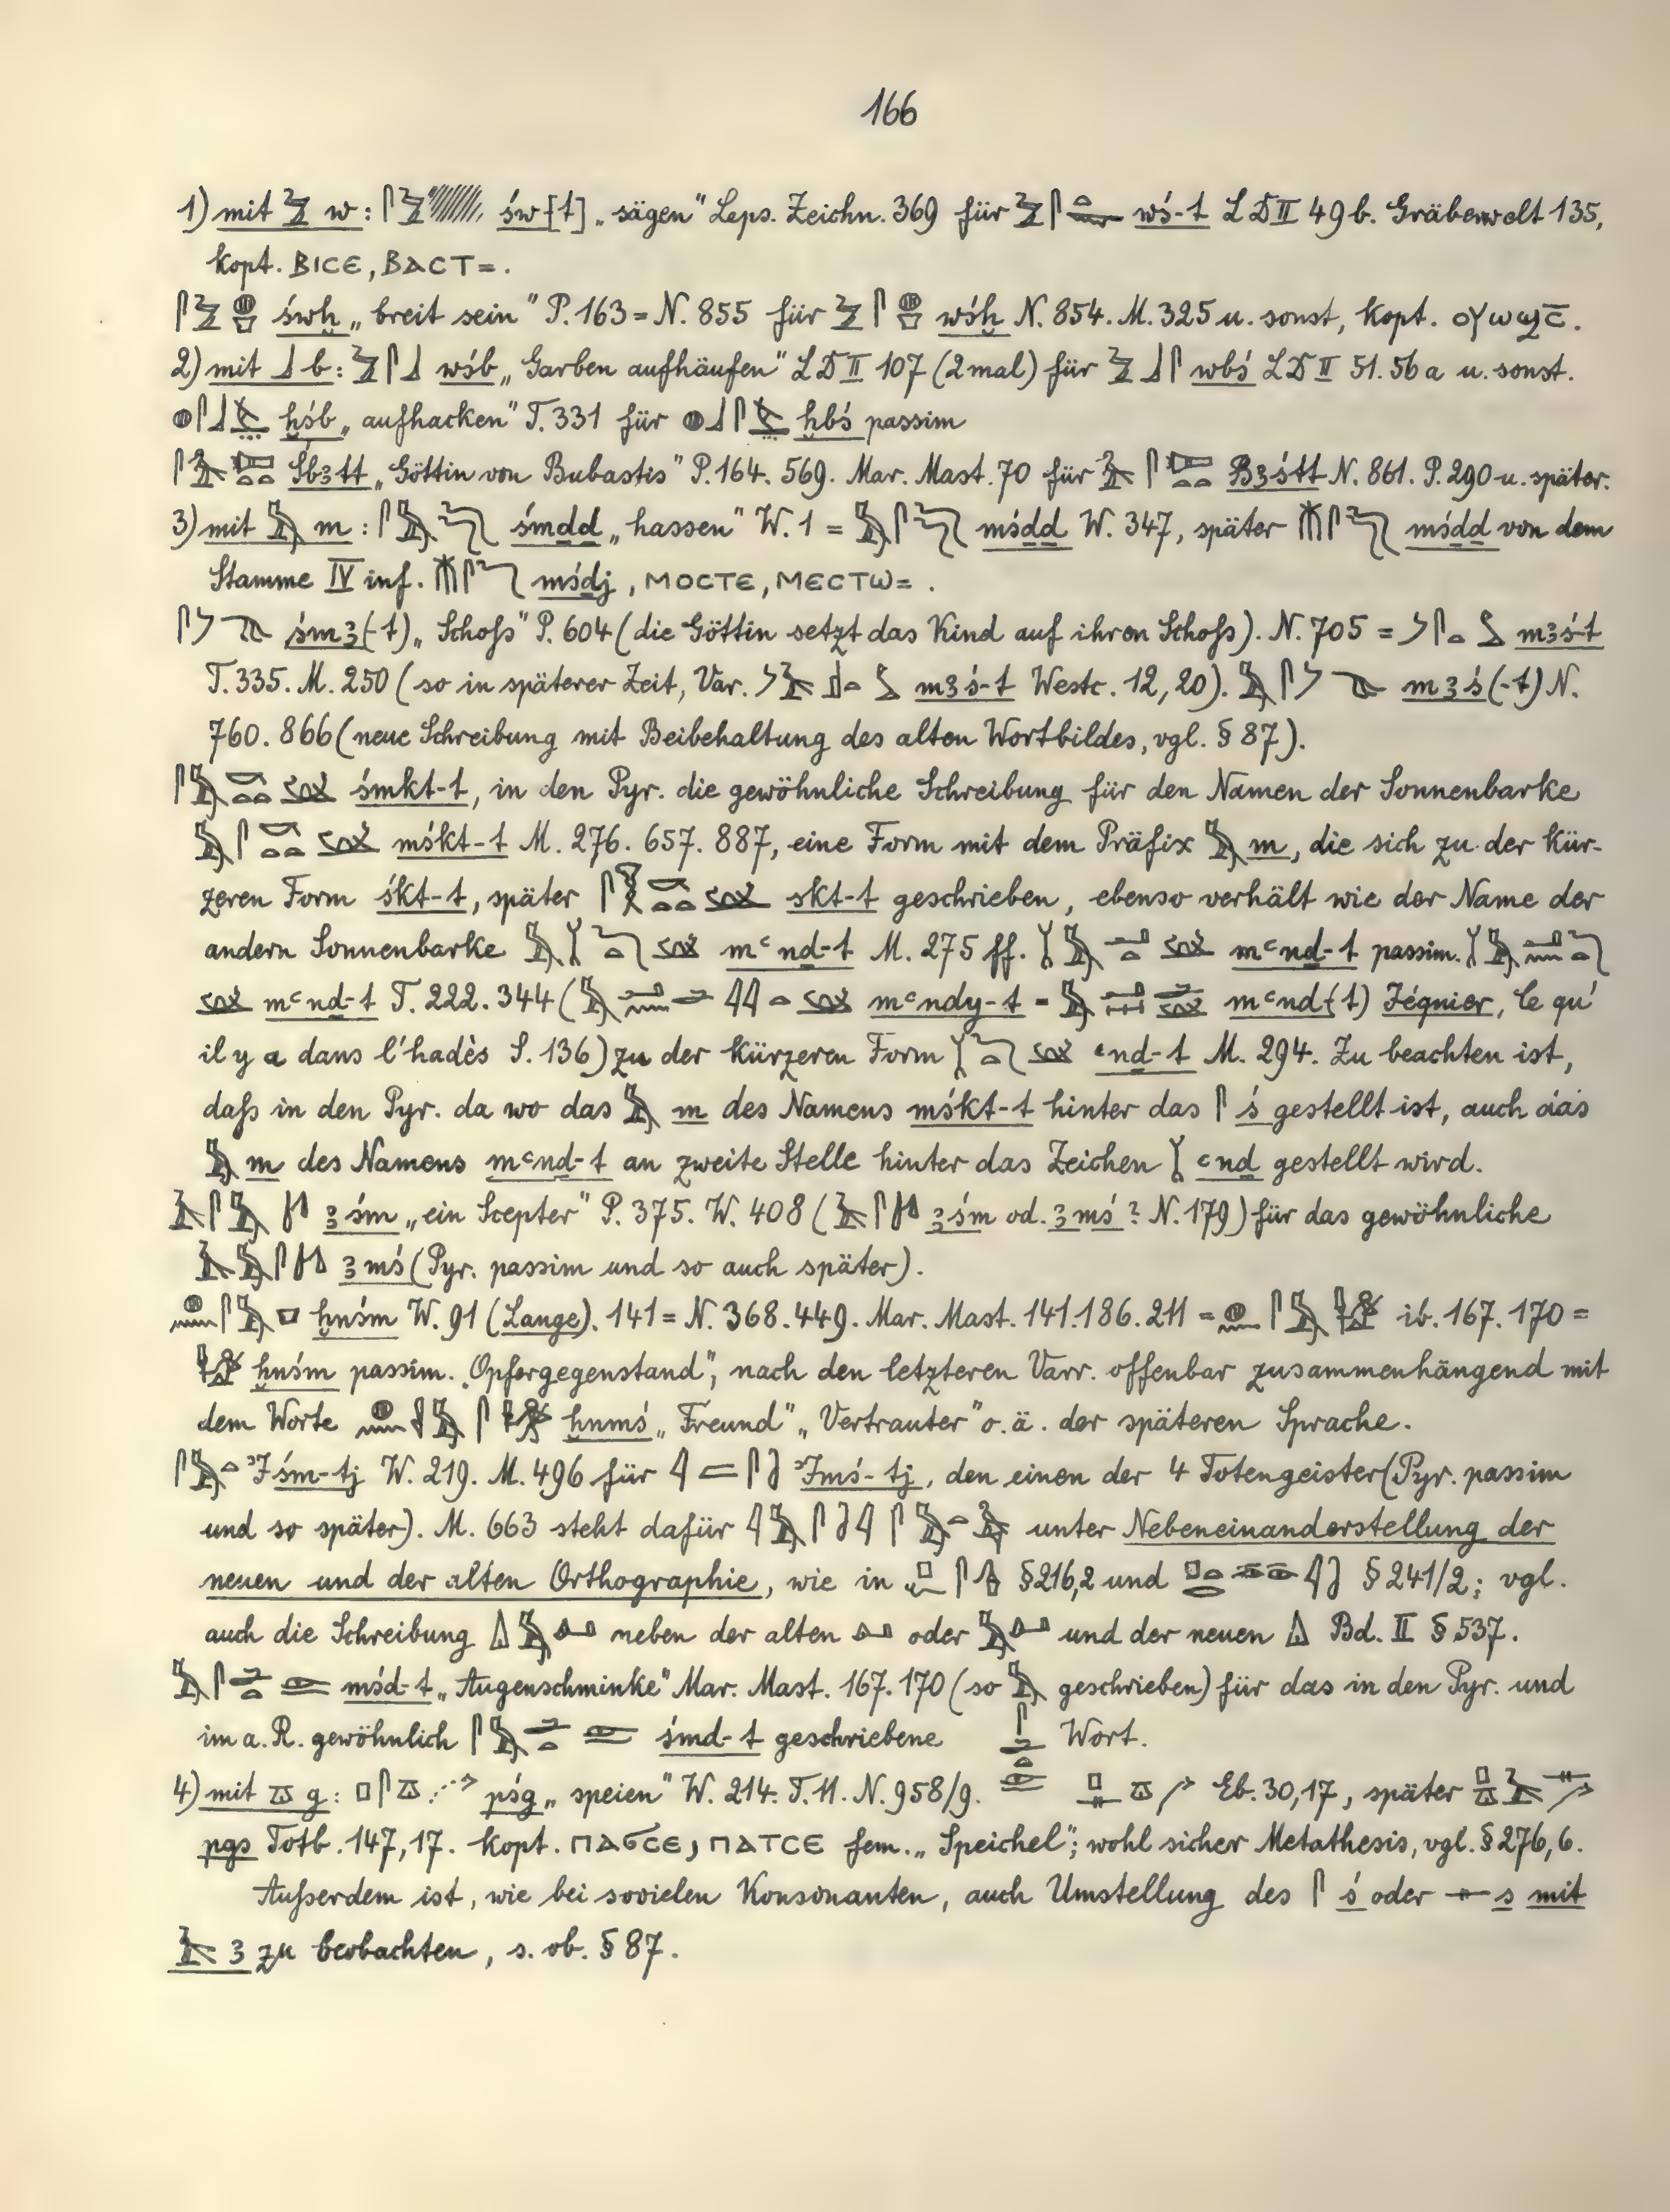 166
1) mit 𓅱 w: 𓋴𓅱 św[t] „sägen" Leps. Zeichn. 369 für 𓅱𓋴𓏏 wś-t LD II 49b. Gräberwelt 135,
kopt. ⲂⲒⲤⲈ, ⲂⲀⲤⲦ=.
𓋴𓅱𓐍 śwḫ „breit sein" P. 163 = N. 855 für 𓅱𓋴𓐍 wśḫ N. 854. M. 325 u. sonst, kopt. ⲟⲩⲱϣⲥ̄.
2) mit 𓃀 b: 𓅱𓋴𓃀 wśb „Garben aufhäufen" LD II 107 (2mal) für 𓅱𓃀𓋴 wbś LD II 51. 56a u. sonst.
𓐍𓋴𓃀 ḫśb „aufhacken" T. 331 für 𓐍𓃀𓋴 ḫbś passim
𓋴 Śbꜣtt „Göttin von Bubastis" P. 164. 569. Mar. Mast. 70 für Bꜣśtt N. 861. P. 290 u. später.
3) mit 𓅓 m: 𓋴𓅓 śmḏḏ „hassen" W. 1 = 𓅓𓋴 mśḏḏ W. 347, später 𓄟𓋴 mśḏḏ von dem
Stamme IV inf. 𓄟𓋴 mśḏj, ⲘⲞⲤⲦⲈ, ⲘⲈⲤⲦⲰ=.
𓋴𓌳 śmꜣ(-t) „Schoß" P. 604 (die Göttin setzt das Kind auf ihren Schoß). N. 705 = 𓌳𓋴𓏏 mꜣś-t
T. 335. M. 250 (so in späterer Zeit, Var. mꜣś-t Westc. 12,20). 𓅓𓋴𓌳 mꜣś(-t) N.
760. 866 (neue Schreibung mit Beibehaltung des alten Wortbildes, vgl. § 87).
𓋴𓅓𓎡𓏏𓏏 śmkt-t, in den Pyr. die gewöhnliche Schreibung für den Namen der Sonnenbarke
𓅓𓋴𓎡𓏏𓏏 mśkt-t M. 276. 657. 887, eine Form mit dem Präfix 𓅓 m, die sich zu der kür-
zeren Form śkt-t, später 𓋴𓎡𓏏𓏏 skt-t geschrieben, ebenso verhält wie der Name der
andern Sonnenbarke mꜥnḏ-t M. 275 ff. mꜥnḏ-t passim.
mꜥnḏ-t T. 222. 344 (mꜥndy-t = mꜥnd(t) Jéquier, le qu'
il y a dans l'hadès S. 136) zu der kürzeren Form ꜥnḏ-t M. 294. Zu beachten ist,
daß in den Pyr. da wo das 𓅓 m des Namens mśkt-t hinter das 𓋴 ś gestellt ist, auch das
𓅓 m des Namens mꜥnḏ-t an zweite Stelle hinter das Zeichen ꜥnḏ gestellt wird.
𓄿𓋴𓅓 ꜣśm „ein Scepter" P. 375. W. 408 (𓄿𓋴 ꜣśm od. ꜣmś? N. 179) für das gewöhnliche
𓄿𓅓𓋴 ꜣmś (Pyr. passim und so auch später).
𓐍𓈖𓋴𓅓 ḫnśm W. 91 (Lange). 141 = N. 368. 449. Mar. Mast. 141. 186. 211 = 𓐍𓈖𓋴𓅓 ib. 167. 170 =
ḫnśm passim. „Opfergegenstand", nach den letzteren Varr. offenbar zusammenhängend mit
dem Worte ḫnmś „Freund" „Vertrauter" o. ä. der späteren Sprache.
𓋴𓅓𓏏 ꜣIśm-tj W. 219. M. 496 für 𓇋𓐝𓋴 ꜣImś-tj, den einen der 4 Totengeister (Pyr. passim
und so später). M. 663 steht dafür unter Nebeneinanderstellung der
neuen und der alten Orthographie, wie in § 216,2 und § 241/2; vgl.
auch die Schreibung 𓅓 neben der alten oder 𓅓 und der neuen Bd. II § 537.
𓅓𓋴𓂧𓏏 mśd-t „Augenschminke" Mar. Mast. 167. 170 (so 𓅓 geschrieben) für das in den Pyr. und
im a. R. gewöhnlich 𓋴𓅓𓂧𓏏 śmd-t geschriebene 𓋴𓂧𓏏 Wort.
4) mit 𓎼 g: 𓊪𓋴𓎼 pśg „speien" W. 214. T. 11. N. 958/9. 𓊪𓊃𓎼 Eb. 30,17, später 𓊪𓎼𓄿𓊃
pgs Totb. 147,17. kopt. ⲠⲀϬⲤⲈ, ⲠⲀⲦⲤⲈ fem. „Speichel"; wohl sicher Metathesis, vgl. § 276,6.
Außerdem ist, wie bei sovielen Konsonanten, auch Umstellung des 𓋴 ś oder 𓊃 s mit
𓄿 ꜣ zu beobachten, s. ob. § 87.